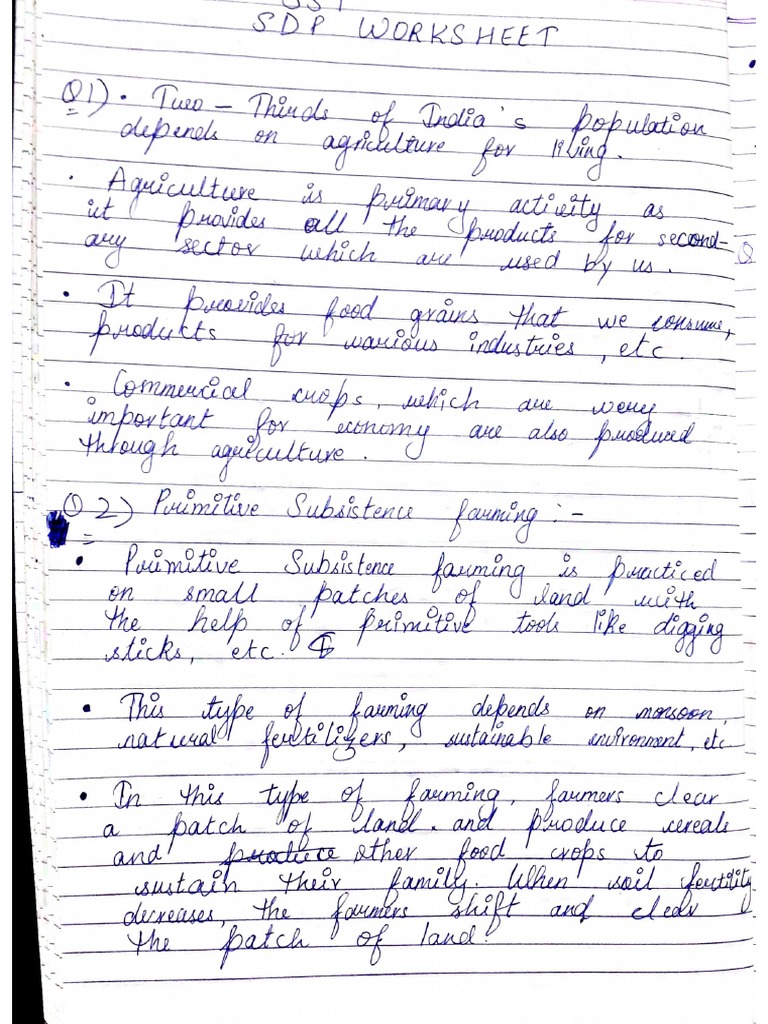 SST
SDP WORKSHEET
Q1) • Two - Thirds of India's population
depends on agriculture for living.
• Agriculture is primary activity as
it provides all the products for second-
ary sector which are used by us.
• It provides food grains that we consume,
products for various industries, etc.
• Commercial crops, which are very
important for economy are also produced
through agriculture.
Q2) Primitive Subsistence farming :-
• Primitive Subsistence farming is practiced
on small patches of land with
the help of primitive tools like digging
sticks, etc.
• This type of farming depends on monsoon,
natural fertilizers, sustainable environment, etc
• In this type of farming, farmers clear
a patch of land. and produce cereals
and produce other food crops to
sustain their family. When soil fertility
decreases, the farmers shift and clear
the patch of land.